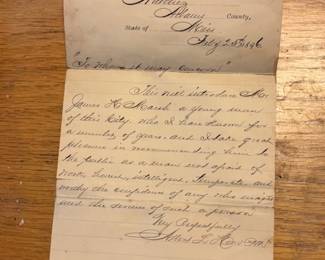 Natchez
Adams County,
State of Miss
Feby 25th 1896
"To whom it may concern"
This will introduce Mr
James H. Marsh a young man
of this City, who I have known for
a number of years and I take great
pleasure in recommending him to
the public as a man not afraid of
work, honest, intelligent, temperate and
worthy the confidence of any who may
need the service of such a person
Very Respectfully